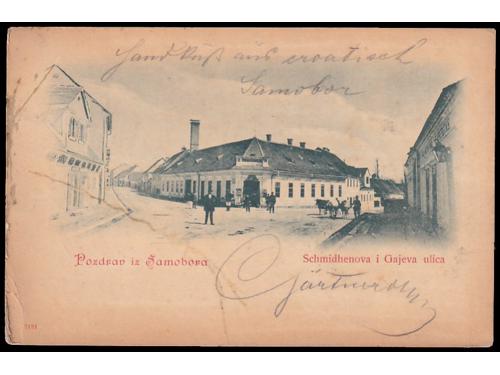 Handkuß aus croatisch
Samobor
Pozdrav iz Samobora
Schmidhenova i Gajeva ulica